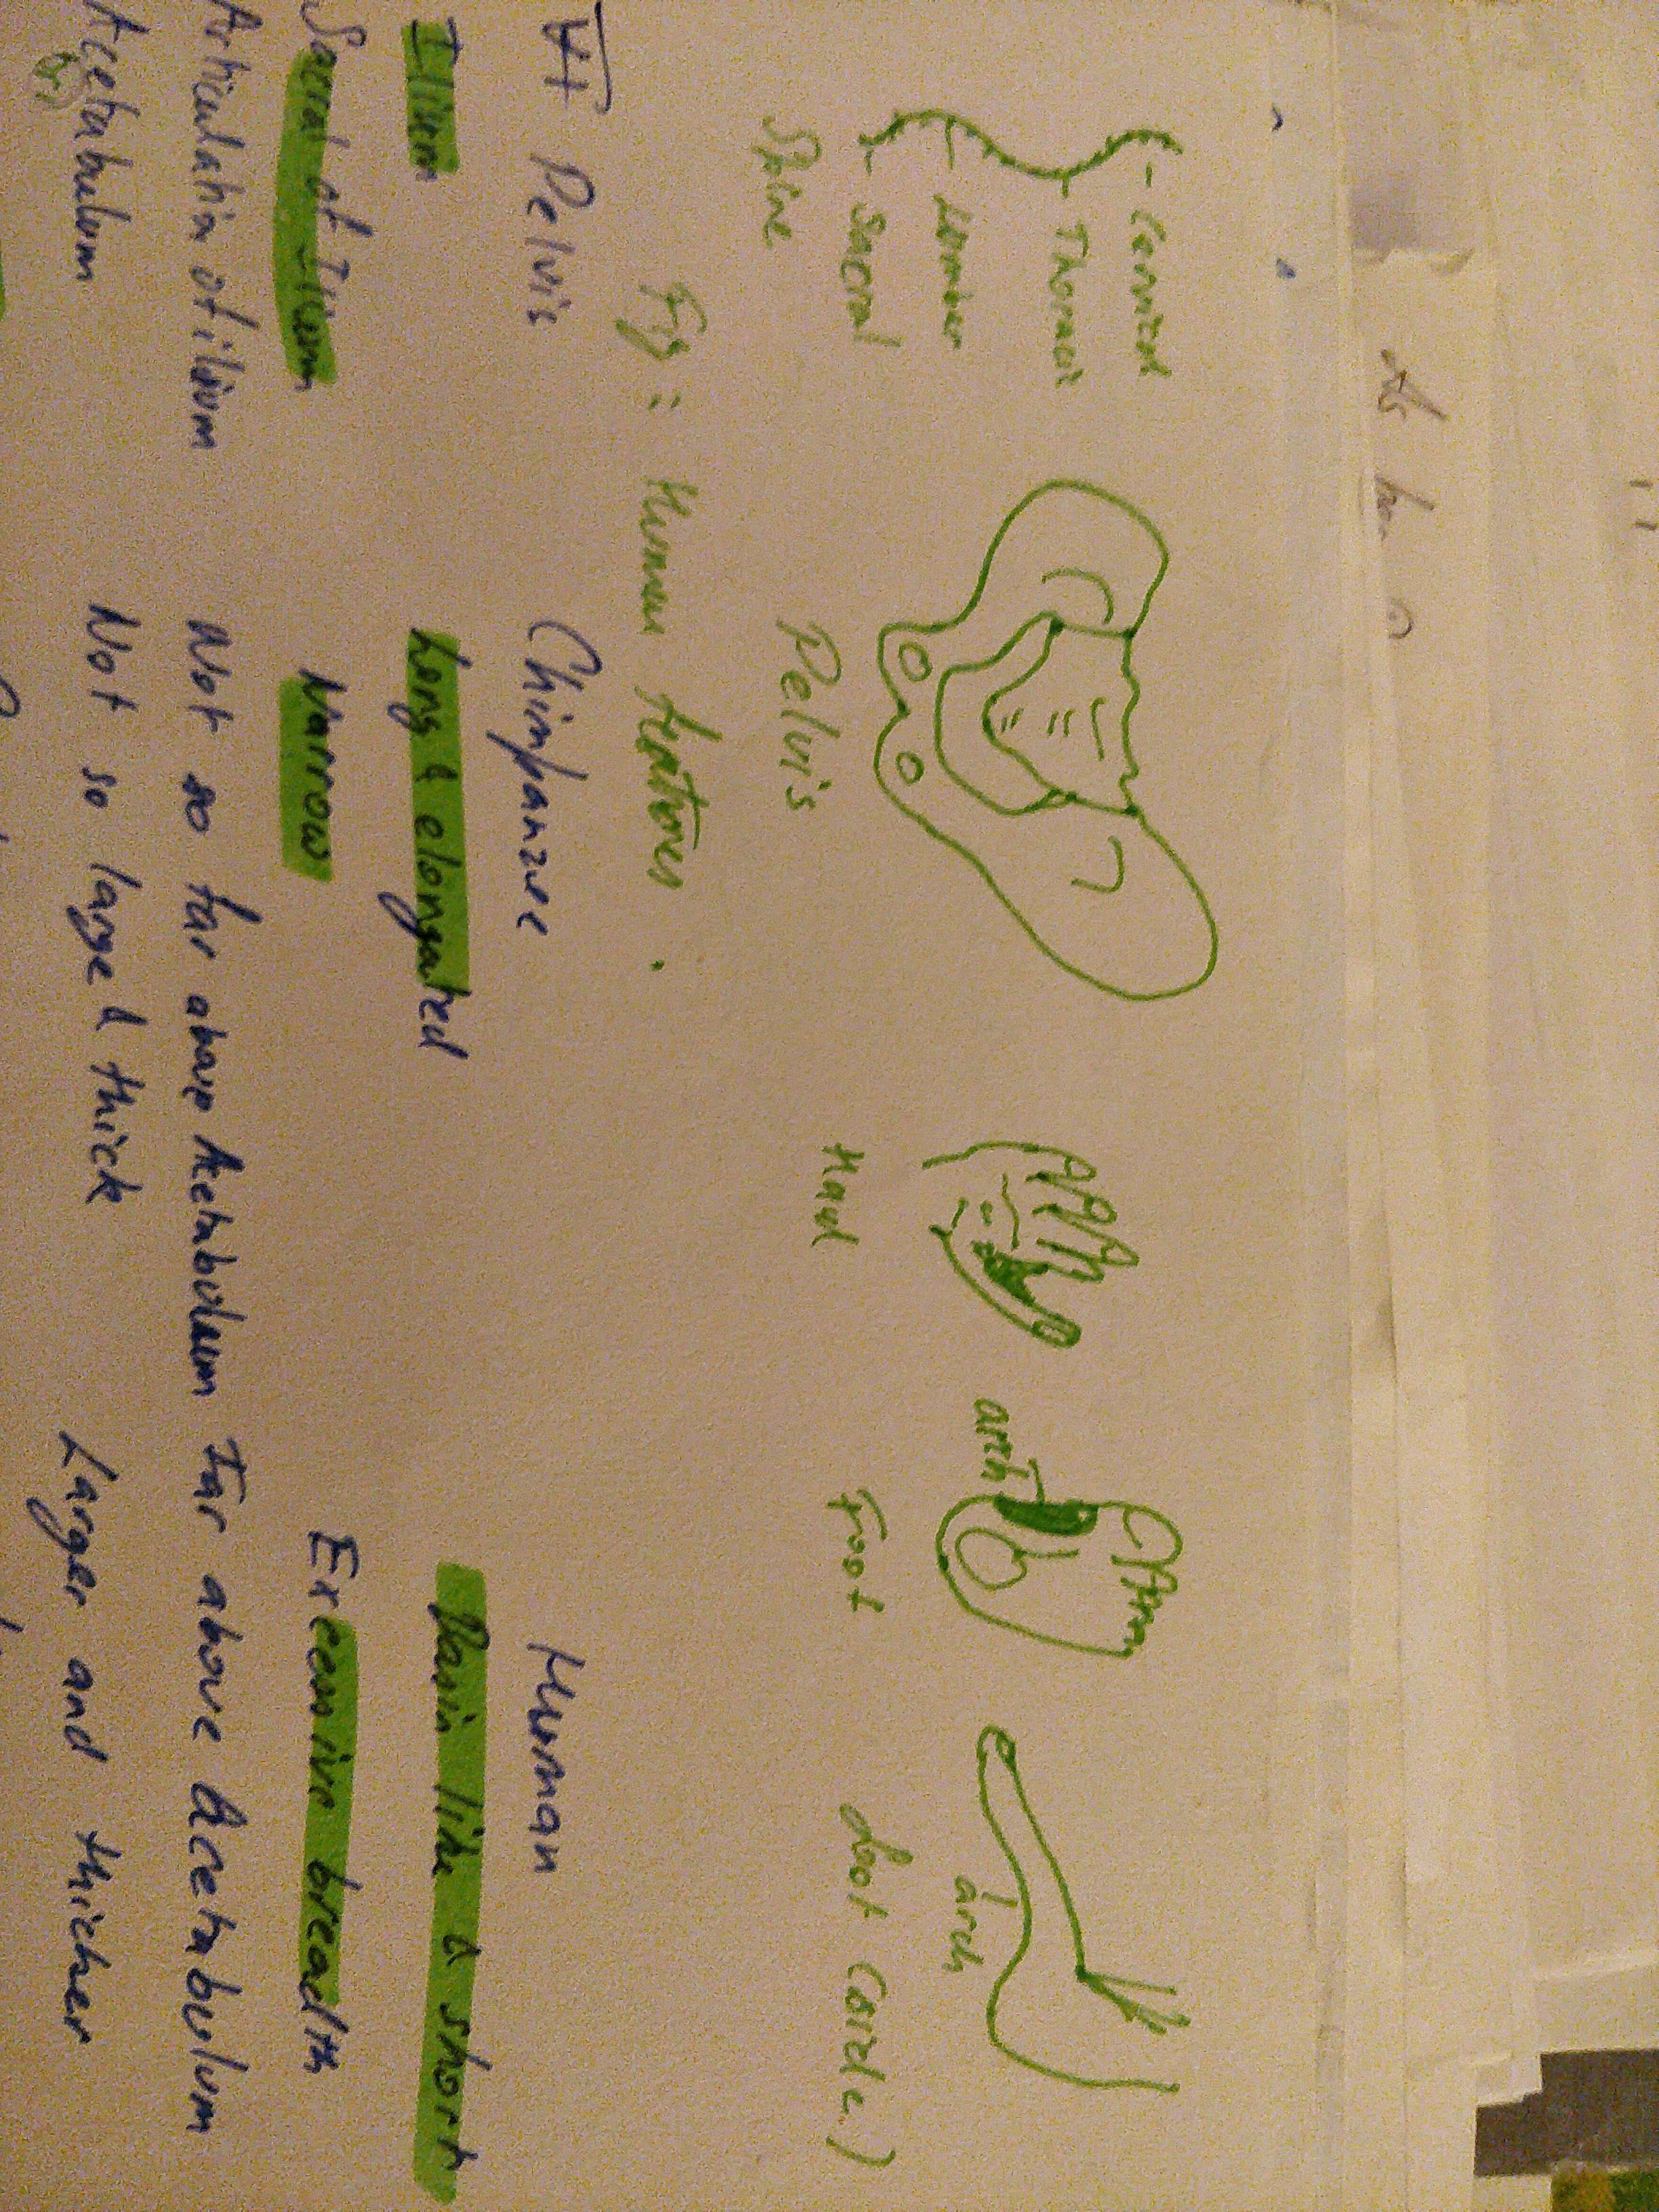 Cervical
Thoracic
Lumber
Sacral
Spine
Pelvis
Hand
arch
Foot
arch
foot (side)
Fig: Human features.
VI Pelvis Chimpanzee Human
Illium Long & elongated Basin like & short
Sacral of Ilium Narrow Excessive breadth
Articulation of ilium Not so far above Acetabulum Far above Acetabulum
Acetabulum Not so large & thick Larger and thicker